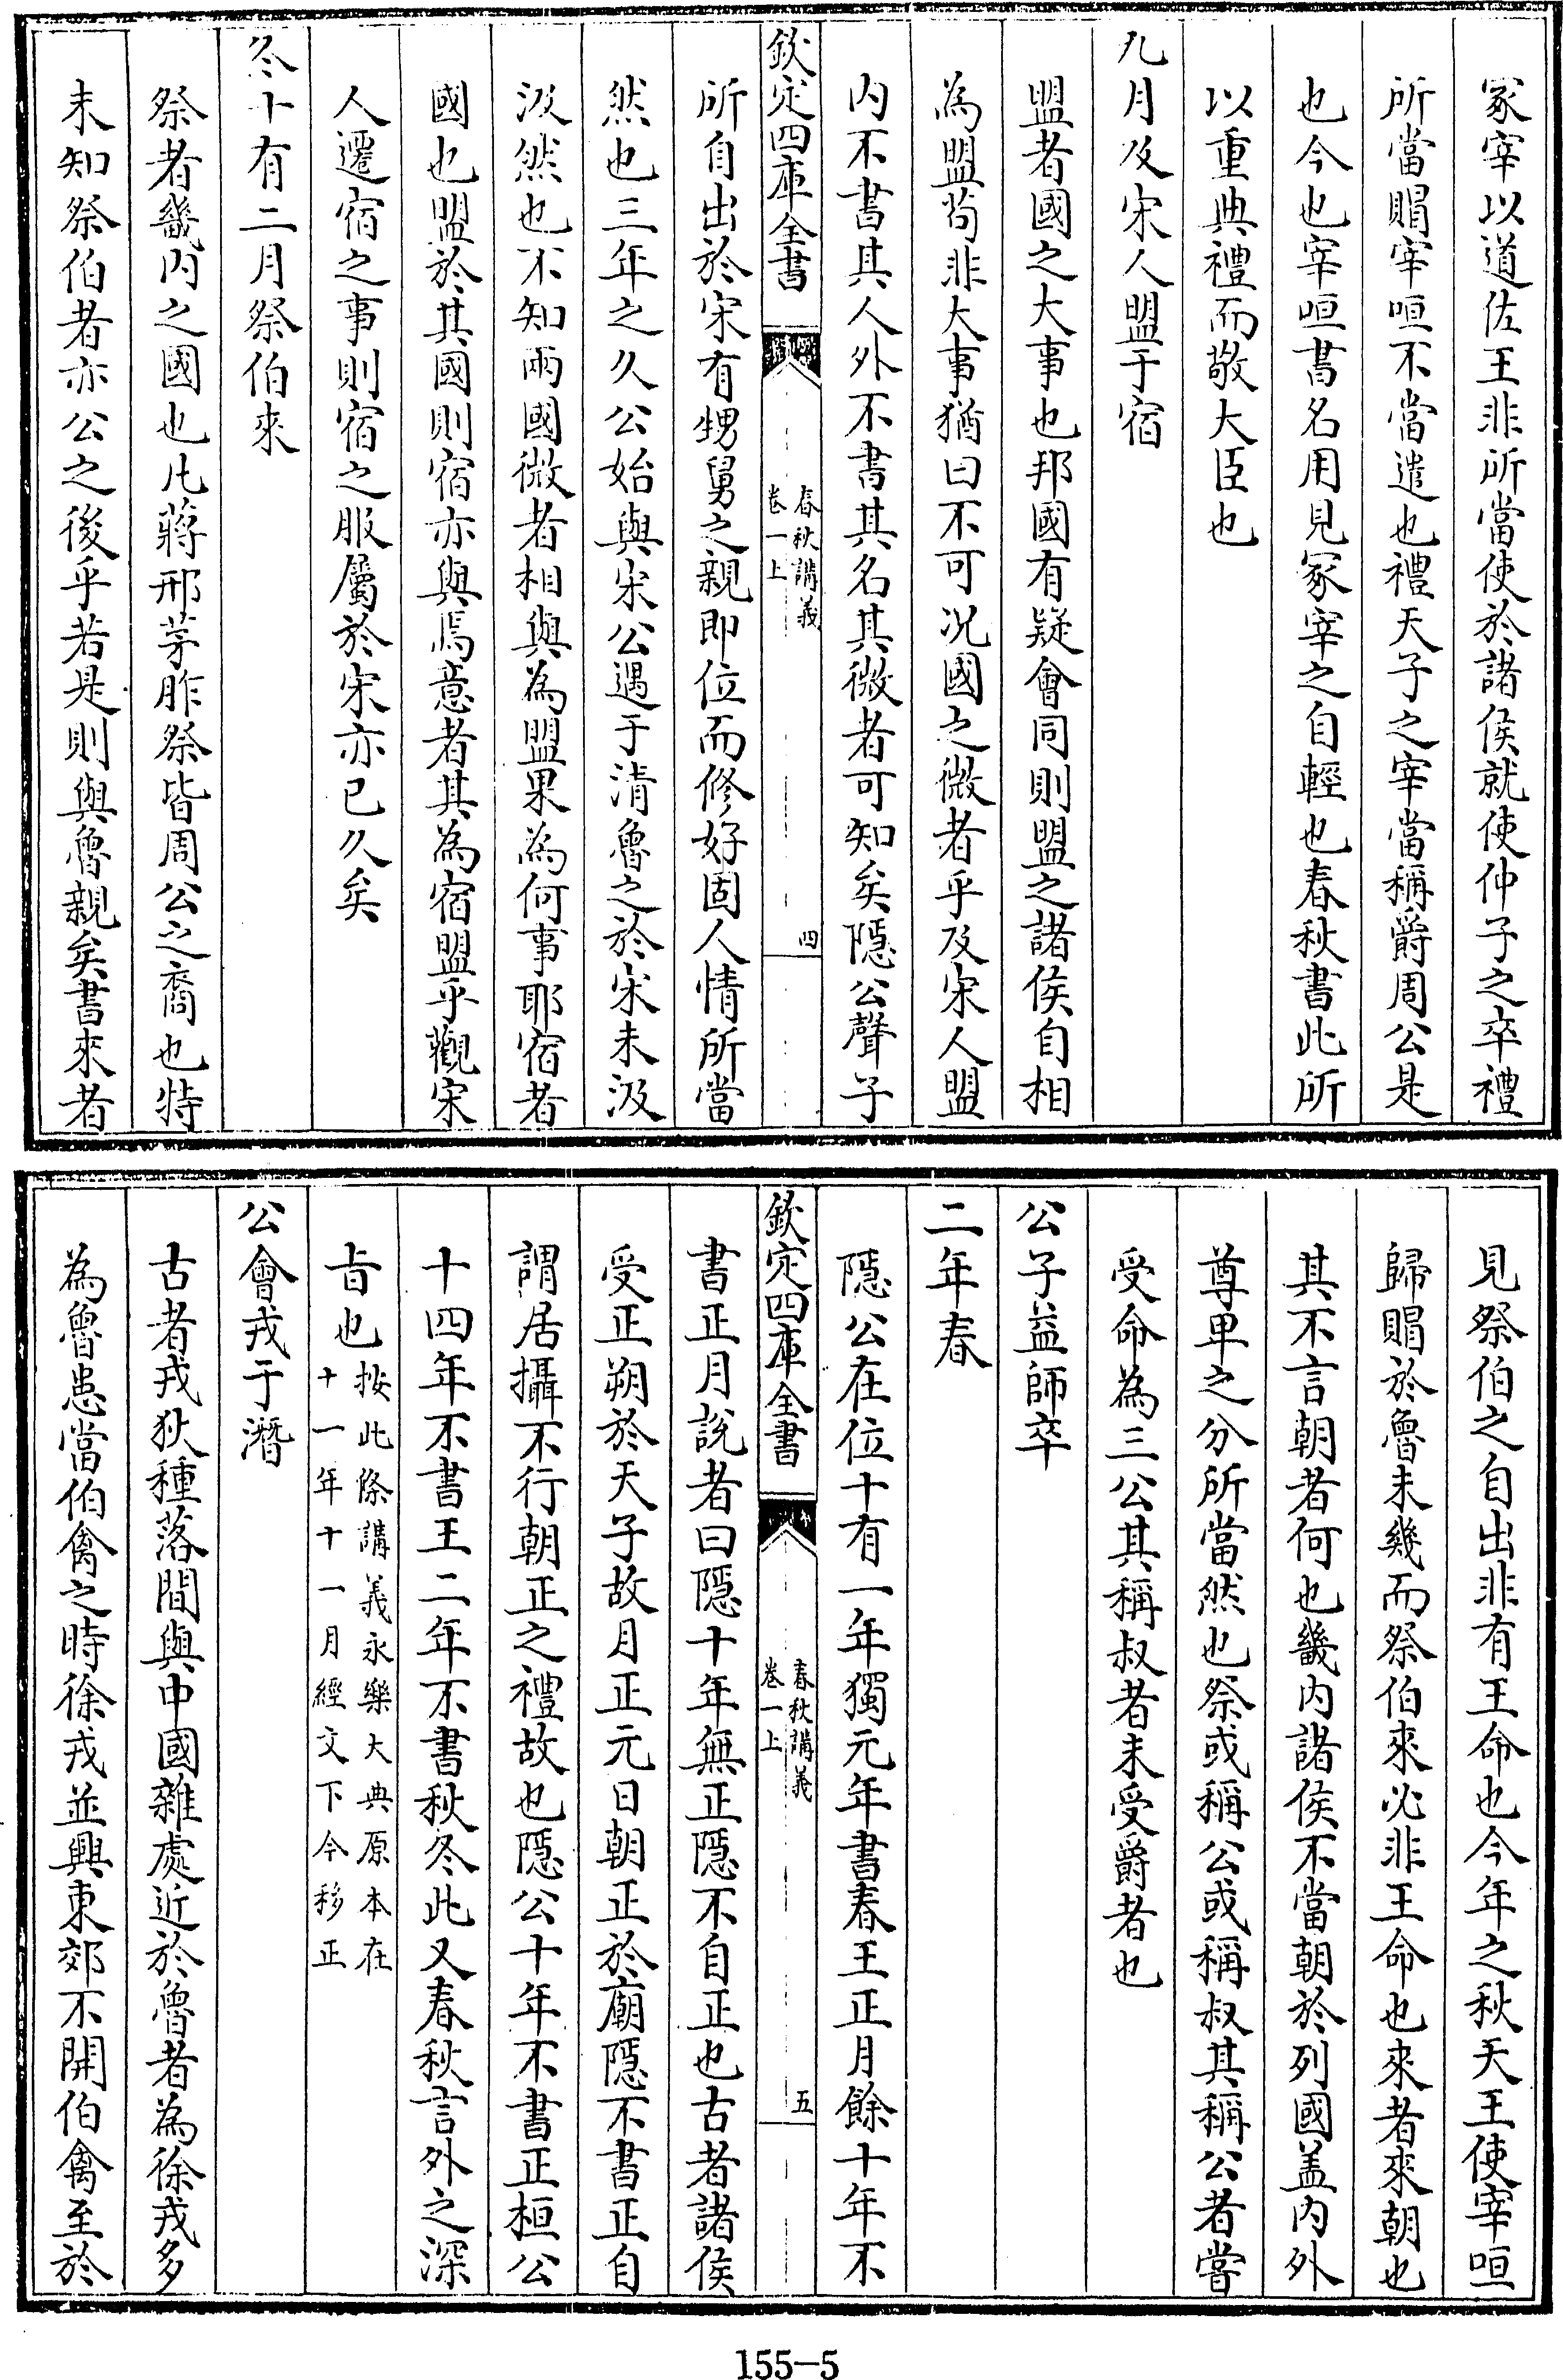 冢宰以道佐王非所當使於諸侯就使仲子之卒禮
所當賵宰咺不當遣也禮天子之宰當稱爵周公是
也今也宰咺書名用見冢宰之自輕也春秋書此所
以重典禮而敬大臣也
九月及宋人盟于宿
盟者國之大事也邦國有疑會同則盟之諸侯自相
為盟茍非大事猶曰不可况國之微者乎及宋人盟
内不書其人外不書其名其微者可知矣隠公聲子
欽定四庫全書
春秋講義
卷一上
四
所自出於宋有甥舅之親即位而修好固人情所當
然也三年之久公始與宋公遇于清魯之於宋未汲
汲然也不知兩國微者相與為盟果為何事耶宿者
國也盟於其國則宿亦與焉意者其為宿盟乎觀宋
人遷宿之事則宿之服屬於宋亦已久矣
冬十有二月祭伯來
祭者畿内之國也凡蔣邢茅胙祭皆周公之裔也特
未知祭伯者亦公之後乎若是則與魯親矣書來者
見祭伯之自出非有王命也今年之秋天王使宰咺
歸賵於魯未幾而祭伯來必非王命也來者來朝也
其不言朝者何也畿内諸侯不當朝於列國盖内外
尊卑之分所當然也祭或稱公或稱叔其稱公者嘗
受命為三公其稱叔者未受爵者也
公子益師卒
二年春
隠公在位十有一年獨元年書春王正月餘十年不
欽定四庫全書
春秋講義
卷一上
五
書正月說者曰隠十年無正隠不自正也古者諸侯
受正朔於天子故月正元日朝正於廟隠不書正自
謂居攝不行朝正之禮故也隠公十年不書正桓公
十四年不書王二年不書秋冬此又春秋言外之深
㫖也
按此條講義永樂大典原本在
十一年十一月經文下今移正
公會戎于潛
古者戎狄種落間與中國雜處近於魯者為徐戎多
為魯患當伯禽之時徐戎並興東郊不開伯禽至於
155-5